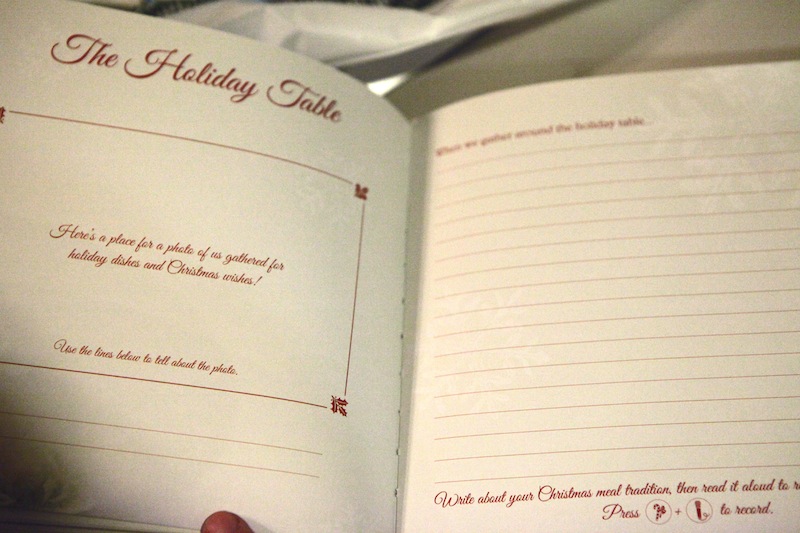 The Holiday Table
Here's a place for a photo of us gathered for
holiday dishes and Christmas wishes!
Use the lines below to tell about the photo.
When we gather around the holiday table...
Write about your Christmas meal tradition, then read it aloud to
Press + to record.